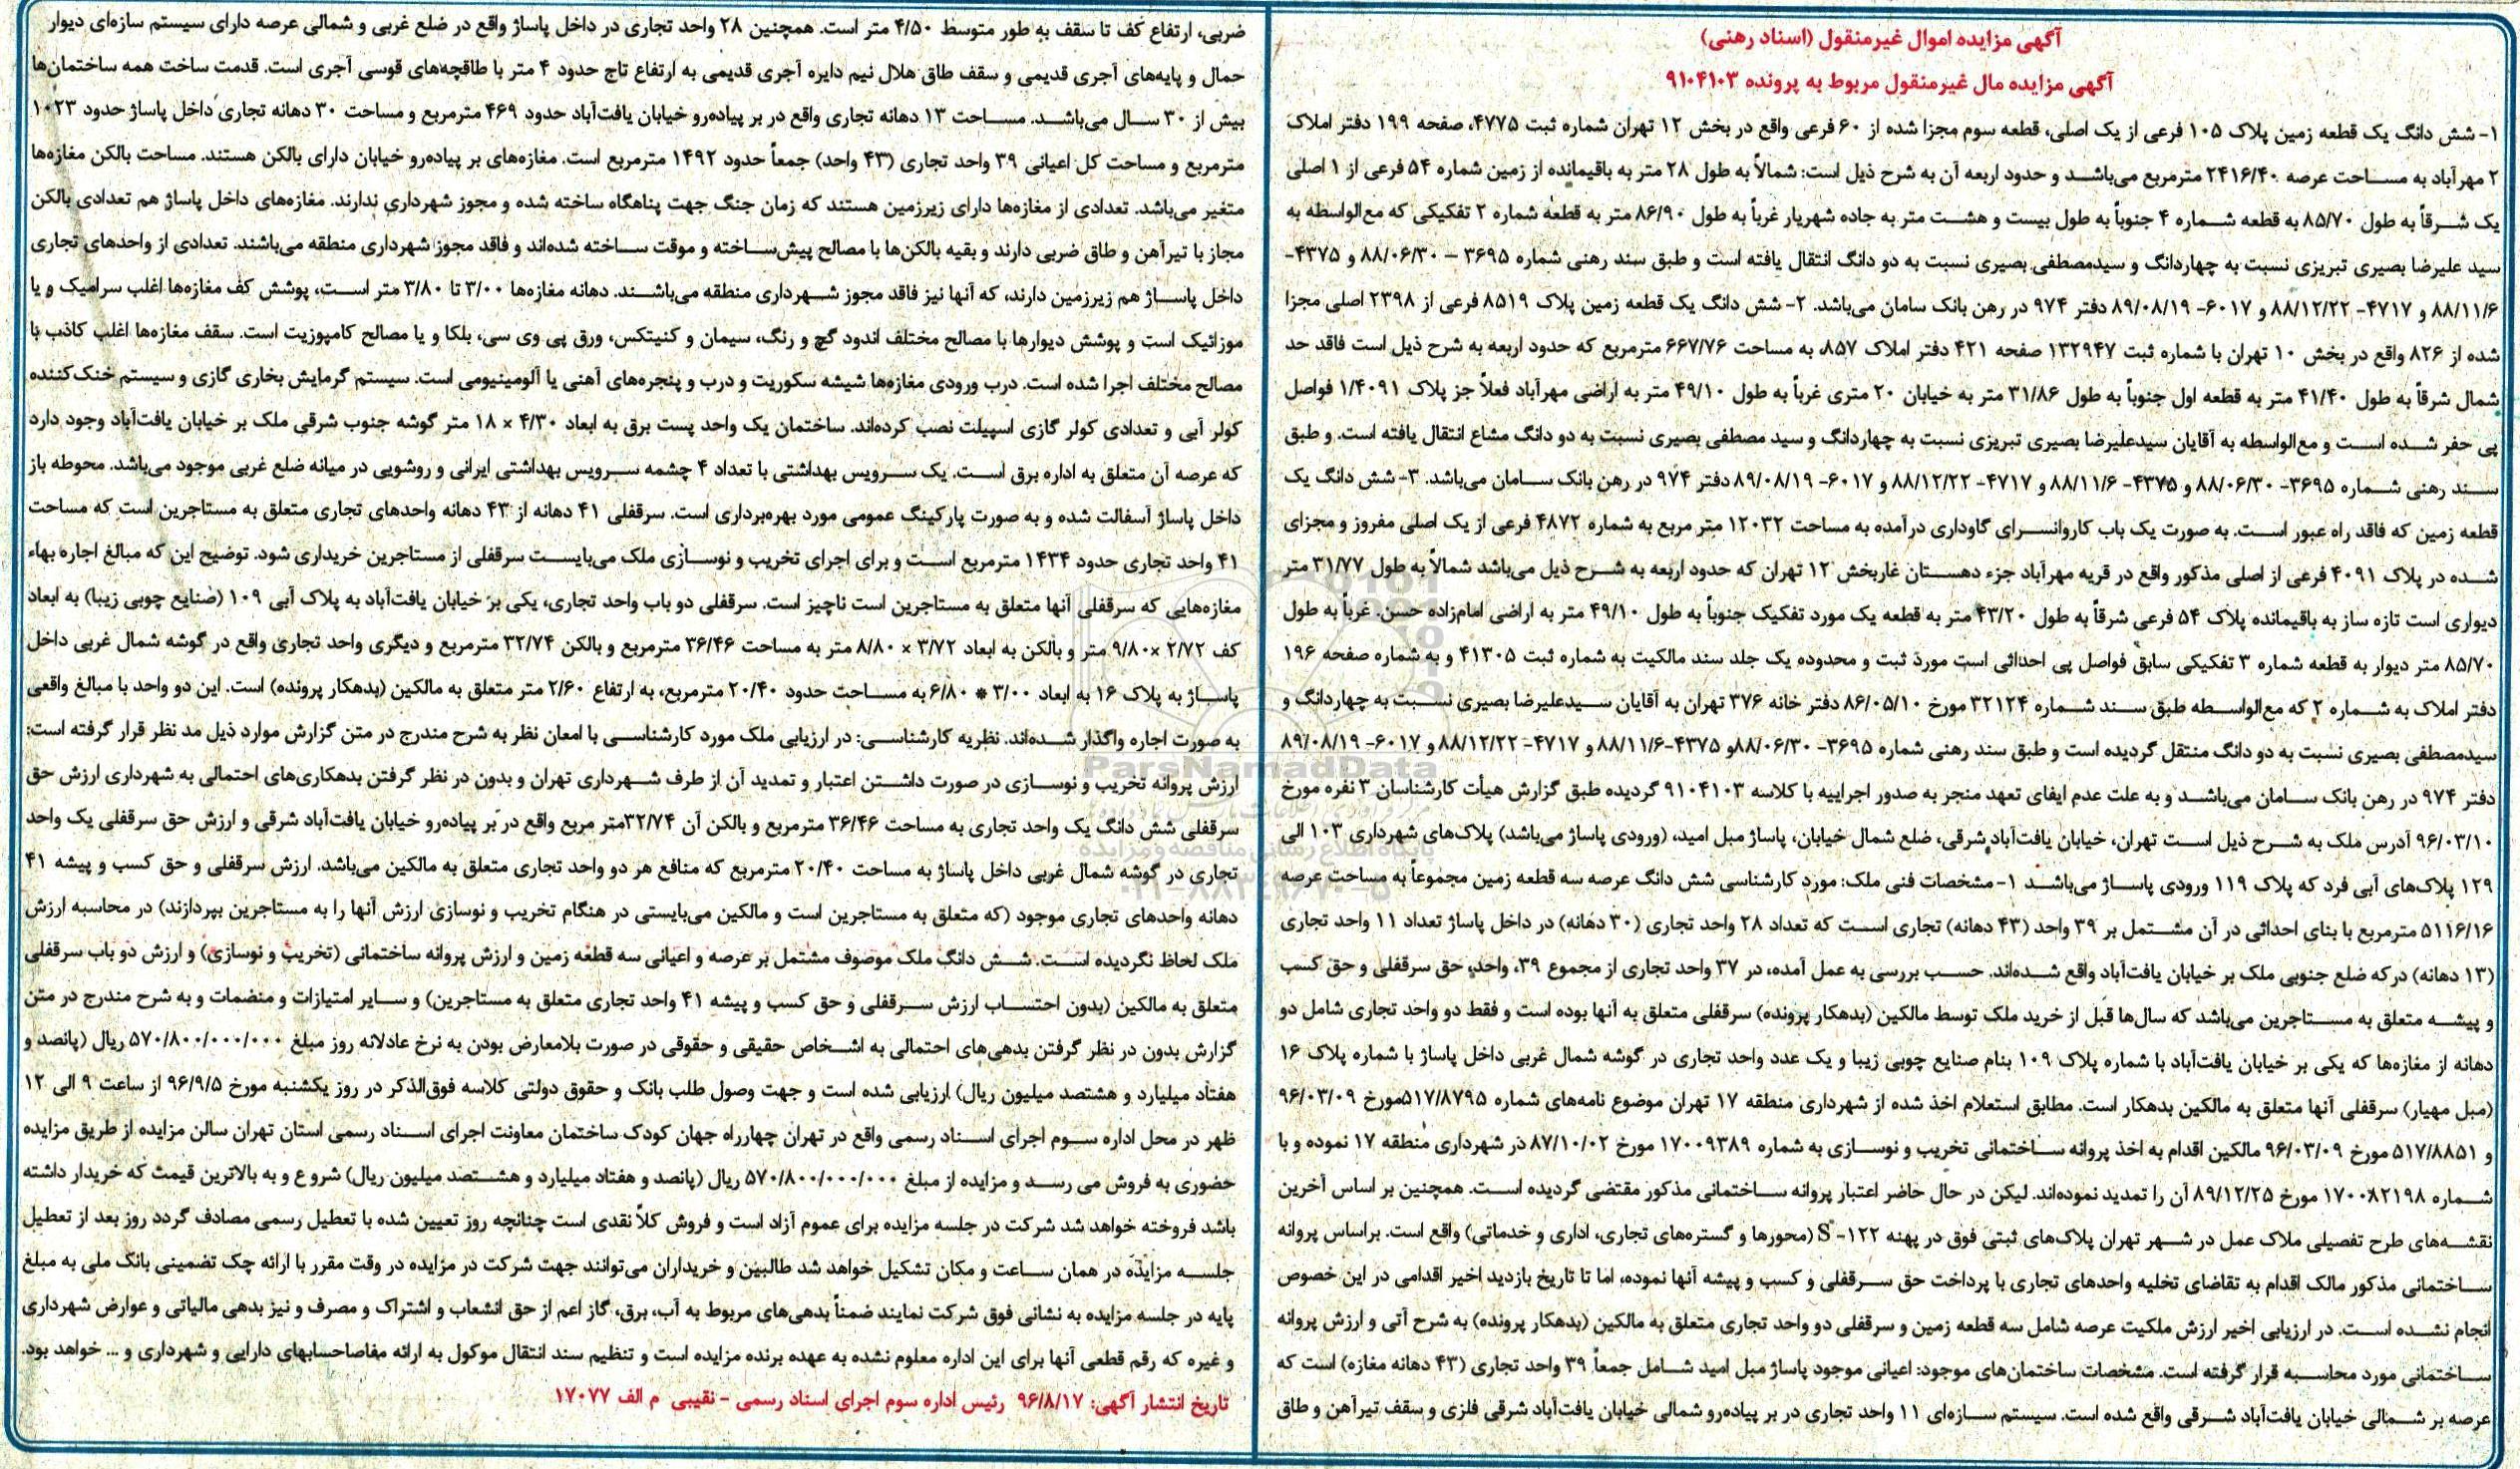 آگهی مزایده اموال غیرمنقول (اسناد رهنی)
آگهی مزایده مال غیرمنقول مربوط به پرونده ۹۱۰۴۱۰۳
۱- شش دانگ یک قطعه زمین پلاک ۱۰۵ فرعی از یک اصلی، قطعه سوم مجزا شده از ۶۰ فرعی واقع در بخش ۱۲ تهران شماره ثبت ۴۷۷۵، صفحه ۱۹۹ دفتر املاک
۲ مهرآباد به مساحت عرصه ۲۴۱۶/۴۰ مترمربع می‌باشد و حدود اربعه آن به شرح ذیل است: شمالاً به طول ۲۸ متر به باقیمانده از زمین شماره ۵۴ فرعی از ۱ اصلی
یک شرقاً به طول ۸۵/۷۰ به قطعه شماره ۴ جنوباً به طول بیست و هشت متر به جاده شهریار غرباً به طول ۸۶/۹۰ متر به قطعه شماره ۲ تفکیکی که مع‌الواسطه به
سید علیرضا بصیری تبریزی نسبت به چهاردانگ و سیدمصطفی بصیری نسبت به دو دانگ انتقال یافته است و طبق سند رهنی شماره ۳۶۹۵ – ۸۸/۰۶/۳۰ و ۴۳۷۵-
۸۸/۱۱/۶ و ۴۷۱۷- ۸۸/۱۲/۲۲ و ۶۰۱۷- ۸۹/۰۸/۱۹ دفتر ۹۷۴ در رهن بانک سامان می‌باشد. ۲- شش دانگ یک قطعه زمین پلاک ۸۵۱۹ فرعی از ۲۳۹۸ اصلی مجزا
شده از ۸۲۶ واقع در بخش ۱۰ تهران با شماره ثبت ۱۳۲۹۴۷ صفحه ۴۲۱ دفتر املاک ۸۵۷، به مساحت ۶۶۷/۷۶ مترمربع که حدود اربعه به شرح ذیل است فاقد حد
شمال شرقاً به طول ۴۱/۴۰ متر به قطعه اول جنوباً به طول ۳۱/۸۶ متر به خیابان ۲۰ متری غرباً به طول ۴۹/۱۰ متر به اراضی مهرآباد فعلاً جز پلاک ۱/۴۰۹۱ فواصل
پی حفر شده است و مع‌الواسطه به آقایان سیدعلیرضا بصیری تبریزی نسبت به چهاردانگ و سید مصطفی بصیری نسبت به دو دانگ مشاع انتقال یافته است. و طبق
سند رهنی شماره ۳۶۹۵- ۸۸/۰۶/۳۰ و ۴۳۷۵- ۸۸/۱۱/۶ و ۴۷۱۷- ۸۸/۱۲/۲۲ و ۶۰۱۷- ۸۹/۰۸/۱۹ دفتر ۹۷۴ در رهن بانک سامان می‌باشد. ۳- شش دانگ یک
قطعه زمین که فاقد راه عبور است. به صورت یک باب کاروانسرای گاوداری درآمده به مساحت ۱۲۰۳۲ متر مربع به شماره ۴۸۷۲ فرعی از یک اصلی مفروز و مجزای
شده در پلاک ۴۰۹۱ فرعی از اصلی مذکور واقع در قریه مهرآباد جزء دهستان غاربخش ۱۲ تهران که حدود اربعه به شرح ذیل می‌باشد شمالاً به طول ۳۱/۷۷ متر
دیواری است تازه ساز به باقیمانده پلاک ۵۴ فرعی شرقاً به طول ۴۳/۲۰ متر به قطعه یک مورد تفکیک جنوباً به طول ۴۹/۱۰ متر به اراضی امام‌زاده حسن. غرباً به طول
۸۵/۷۰ متر دیوار به قطعه شماره ۳ تفکیکی سابق فواصل پی احداثی است مورد ثبت و محدوده یک جلد سند مالکیت به شماره ثبت ۴۱۳۰۵ و به شماره صفحه ۱۹۶
دفتر املاک به شماره ۲ که مع‌الواسطه طبق سند شماره ۳۲۱۲۴ مورخ ۸۶/۰۵/۱۰ دفتر خانه ۳۷۶ تهران به آقایان سیدعلیرضا بصیری نسبت به چهاردانگ و
سیدمصطفی بصیری نسبت به دو دانگ منتقل گردیده است و طبق سند رهنی شماره ۳۶۹۵- ۸۸/۰۶/۳۰ و ۴۳۷۵-۸۸/۱۱/۶ و ۴۷۱۷- ۸۸/۱۲/۲۲ و ۶۰۱۷- ۸۹/۰۸/۱۹
دفتر ۹۷۴ در رهن بانک سامان می‌باشد و به علت عدم ایفای تعهد منجر به صدور اجراییه با کلاسه ۹۱۰۴۱۰۳ گردیده طبق گزارش هیأت کارشناسان ۳ نفره مورخ
۹۶/۰۳/۱۰ آدرس ملک به شرح ذیل است تهران، خیابان یافت‌آباد شرقی، ضلع شمال خیابان، پاساژ مبل امید، (ورودی پاساژ می‌باشد) پلاک‌های شهرداری ۱۰۳ الی
۱۲۹ پلاک‌های آبی فرد که پلاک ۱۱۹ ورودی پاساژ می‌باشد ۱- مشخصات فنی ملک: مورد کارشناسی شش دانگ عرصه سه قطعه زمین مجموعاً به مساحت عرصه
۵۱۱۶/۱۶ مترمربع با بنای احداثی در آن مشتمل بر ۳۹ واحد (۴۳ دهانه) تجاری است که تعداد ۲۸ واحد تجاری (۳۰ دهانه) در داخل پاساژ تعداد ۱۱ واحد تجاری
(۱۳ دهانه) درکه ضلع جنوبی ملک بر خیابان یافت‌آباد واقع شده‌اند. حسب بررسی به عمل آمده، در ۳۷ واحد تجاری از مجموع ۳۹، واحد، حق سرقفلی و حق کسب
و پیشه متعلق به مستاجرین می‌باشد که سال‌ها قبل از خرید ملک توسط مالکین (بدهکار پرونده) سرقفلی متعلق به آنها بوده است و فقط دو واحد تجاری شامل دو
دهانه از مغازه‌ها که یکی بر خیابان یافت‌آباد با شماره پلاک ۱۰۹ بنام صنایع چوبی زیبا و یک عدد واحد تجاری در گوشه شمال غربی داخل پاساژ با شماره پلاک ۱۶
(مبل مهیار) سرقفلی آنها متعلق به مالکین بدهکار است. مطابق استعلام اخذ شده از شهرداری منطقه ۱۷ تهران موضوع نامه‌های شماره ۵۱۷/۸۷۹۵مورخ ۹۶/۰۳/۰۹
و ۵۱۷/۸۸۵۱ مورخ ۹۶/۰۳/۰۹ مالکین اقدام به اخذ پروانه ساختمانی تخریب و نوسازی به شماره ۱۷۰۰۹۳۸۹ مورخ ۸۷/۱۰/۰۲ در شهرداری منطقه ۱۷ نموده و با
شماره ۱۷۰۰۸۲۱۹۸ مورخ ۸۹/۱۲/۲۵ آن را تمدید نموده‌اند. لیکن در حال حاضر اعتبار پروانه ساختمانی مذکور مقتضی گردیده است. همچنین بر اساس آخرین
نقشه‌های طرح تفصیلی ملاک عمل در شهر تهران پلاک‌های ثبتی فوق در پهنه S-۱۲۲ (محورها و گستره‌های تجاری، اداری و خدماتی) واقع است. براساس پروانه
ساختمانی مذکور مالک اقدام به تقاضای تخلیه واحدهای تجاری با پرداخت حق سرقفلی و کسب و پیشه آنها نموده، اما تا تاریخ بازدید اخیر اقدامی در این خصوص
انجام نشده است. در ارزیابی اخیر ارزش ملکیت عرصه شامل سه قطعه زمین و سرقفلی دو واحد تجاری متعلق به مالکین (بدهکار پرونده) به شرح آتی و ارزش پروانه
ساختمانی مورد محاسبه قرار گرفته است. مشخصات ساختمان‌های موجود: اعیانی موجود پاساژ مبل امید شامل جمعاً ۳۹ واحد تجاری (۴۳ دهانه مغازه) است که
عرصه بر شمالی خیابان یافت‌آباد شرقی واقع شده است. سیستم سازه‌ای ۱۱ واحد تجاری در بر پیاده‌رو شمالی خیابان یافت‌آباد شرقی فلزی و سقف تیرآهن و طاق
ضربی، ارتفاع کف تا سقف به طور متوسط ۴/۵۰ متر است. همچنین ۲۸ واحد تجاری در داخل پاساژ واقع در ضلع غربی و شمالی عرصه دارای سیستم سازه‌ای دیوار
حمال و پایه‌های آجری قدیمی و سقف طاق هلال نیم دایره آجری قدیمی به ارتفاع تاج حدود ۴ متر با طاقچه‌های قوسی آجری است. قدمت ساخت همه ساختمان‌ها
بیش از ۳۰ سال می‌باشد. مساحت ۱۳ دهانه تجاری واقع در بر پیاده‌رو خیابان یافت‌آباد حدود ۴۶۹ مترمربع و مساحت ۳۰ دهانه تجاری داخل پاساژ حدود ۱۰۲۳
مترمربع و مساحت کل اعیانی ۳۹ واحد تجاری (۴۳ واحد) جمعاً حدود ۱۴۹۲ مترمربع است. مغازه‌های بر پیاده‌رو خیابان دارای بالکن هستند. مساحت بالکن مغازه‌ها
متغیر می‌باشد. تعدادی از مغازه‌ها دارای زیرزمین هستند که زمان جنگ جهت پناهگاه ساخته شده و مجوز شهرداری ندارند. مغازه‌های داخل پاساژ هم تعدادی بالکن
مجاز با تیرآهن و طاق ضربی دارند و بقیه بالکن‌ها با مصالح پیش‌ساخته و موقت ساخته شده‌اند و فاقد مجوز شهرداری منطقه می‌باشند. تعدادی از واحدهای تجاری
داخل پاساژ هم زیرزمین دارند، که آنها نیز فاقد مجوز شهرداری منطقه می‌باشند. دهانه مغازه‌ها ۳/۰۰ تا ۳/۸۰ متر است، پوشش کف مغازه‌ها اغلب سرامیک و یا
موزائیک است و پوشش دیوارها با مصالح مختلف اندود گچ و رنگ، سیمان و کنیتکس، ورق پی وی سی، بلکا و یا مصالح کامپوزیت است. سقف مغازه‌ها اغلب کاذب با
مصالح مختلف اجرا شده است. درب ورودی مغازه‌ها شیشه سکوریت و درب و پنجره‌های آهنی یا آلومینیومی است. سیستم گرمایش بخاری گازی و سیستم خنک‌کننده
کولر آبی و تعدادی کولر گازی اسپیلت نصب کرده‌اند. ساختمان یک واحد پست برق به ابعاد ۴/۳۰ × ۱۸ متر گوشه جنوب شرقی ملک بر خیابان یافت‌آباد وجود دارد
که عرصه آن متعلق به اداره برق است. یک سرویس بهداشتی با تعداد ۴ چشمه سرویس بهداشتی ایرانی و روشویی در میانه ضلع غربی موجود می‌باشد. محوطه باز
داخل پاساژ آسفالت شده و به صورت پارکینگ عمومی مورد بهره‌برداری است. سرقفلی ۴۱ دهانه از ۴۳ دهانه واحدهای تجاری متعلق به مستاجرین است که مساحت
۴۱ واحد تجاری حدود ۱۴۳۴ مترمربع است و برای اجرای تخریب و نوسازی ملک می‌بایست سرقفلی از مستاجرین خریداری شود. توضیح این که مبالغ اجاره بهاء
مغازه‌هایی که سرقفلی آنها متعلق به مستاجرین است ناچیز است. سرقفلی دو باب واحد تجاری، یکی بر خیابان یافت‌آباد به پلاک آبی ۱۰۹ (صنایع چوبی زیبا) به ابعاد
کف ۲/۷۲ ×۹/۸۰ متر و بالکن به ابعاد ۳/۷۲ × ۸/۸۰ متر به مساحت ۳۶/۴۶ مترمربع و بالکن ۳۲/۷۴ مترمربع و دیگری واحد تجاری واقع در گوشه شمال غربی داخل
پاساژ به پلاک ۱۶ به ابعاد ۳/۰۰ * ۶/۸۰ به مساحت حدود ۲۰/۴۰ مترمربع، به ارتفاع ۲/۶۰ متر متعلق به مالکین (بدهکار پرونده) است. این دو واحد با مبالغ واقعی
به صورت اجاره واگذار شده‌اند. نظریه کارشناسی: در ارزیابی ملک مورد کارشناسی با امعان نظر به شرح مندرج در متن گزارش موارد ذیل مد نظر قرار گرفته است:
ارزش پروانه تخریب و نوسازی در صورت داشتن اعتبار و تمدید آن از طرف شهرداری تهران و بدون در نظر گرفتن بدهکاری‌های احتمالی به شهرداری ارزش حق
سرقفلی شش دانگ یک واحد تجاری به مساحت ۳۶/۴۶ مترمربع و بالکن آن ۳۲/۷۴متر مربع واقع در بر پیاده‌رو خیابان یافت‌آباد شرقی و ارزش حق سرقفلی یک واحد
تجاری در گوشه شمال غربی داخل پاساژ به مساحت ۲۰/۴۰ مترمربع که منافع هر دو واحد تجاری متعلق به مالکین می‌باشد. ارزش سرقفلی و حق کسب و پیشه ۴۱
دهانه واحدهای تجاری موجود (که متعلق به مستاجرین است و مالکین می‌بایستی در هنگام تخریب و نوسازی ارزش آنها را به مستاجرین بپردازند) در محاسبه ارزش
ملک لحاظ نگردیده است. شش دانگ ملک موصوف مشتمل بر عرصه و اعیانی سه قطعه زمین و ارزش پروانه ساختمانی (تخریب و نوسازی) و ارزش دو باب سرقفلی
متعلق به مالکین (بدون احتساب ارزش سرقفلی و حق کسب و پیشه ۴۱ واحد تجاری متعلق به مستاجرین) و سایر امتیازات و منضمات و به شرح مندرج در متن
گزارش بدون در نظر گرفتن بدهی‌های احتمالی به اشخاص حقیقی و حقوقی در صورت بلامعارض بودن به نرخ عادلانه روز مبلغ ۵۷۰/۸۰۰/۰۰۰/۰۰۰ ریال (پانصد و
هفتاد میلیارد و هشتصد میلیون ریال) ارزیابی شده است و جهت وصول طلب بانک و حقوق دولتی کلاسه فوق‌الذکر در روز یکشنبه مورخ ۹۶/۹/۵ از ساعت ۹ الی ۱۲
ظهر در محل اداره سوم اجرای اسناد رسمی واقع در تهران چهارراه جهان کودک ساختمان معاونت اجرای اسناد رسمی استان تهران سالن مزایده از طریق مزایده
حضوری به فروش می رسد و مزایده از مبلغ ۵۷۰/۸۰۰/۰۰۰/۰۰۰ ریال (پانصد و هفتاد میلیارد و هشتصد میلیون ریال) شروع و به بالاترین قیمت که خریدار داشته
باشد فروخته خواهد شد شرکت در جلسه مزایده برای عموم آزاد است و فروش کلاً نقدی است چنانچه روز تعیین شده با تعطیل رسمی مصادف گردد روز بعد از تعطیل
جلسه مزایده در همان ساعت و مکان تشکیل خواهد شد طالبین و خریداران می‌توانند جهت شرکت در مزایده در وقت مقرر با ارائه چک تضمینی بانک ملی به مبلغ
پایه در جلسه مزایده به نشانی فوق شرکت نمایند ضمناً بدهی‌های مربوط به آب، برق، گاز اعم از حق انشعاب و اشتراک و مصرف و نیز بدهی مالیاتی و عوارض شهرداری
و غیره که رقم قطعی آنها برای این اداره معلوم نشده به عهده برنده مزایده است و تنظیم سند انتقال موکول به ارائه مفاصاحسابهای دارایی و شهرداری و ... خواهد بود.
تاریخ انتشار آگهی: ۹۶/۸/۱۷ رئیس اداره سوم اجرای اسناد رسمی - نقیبی م الف ۱۷۰۷۷
ParsNamadData
پایگاه اطلاع رسانی مناقصه و مزایده